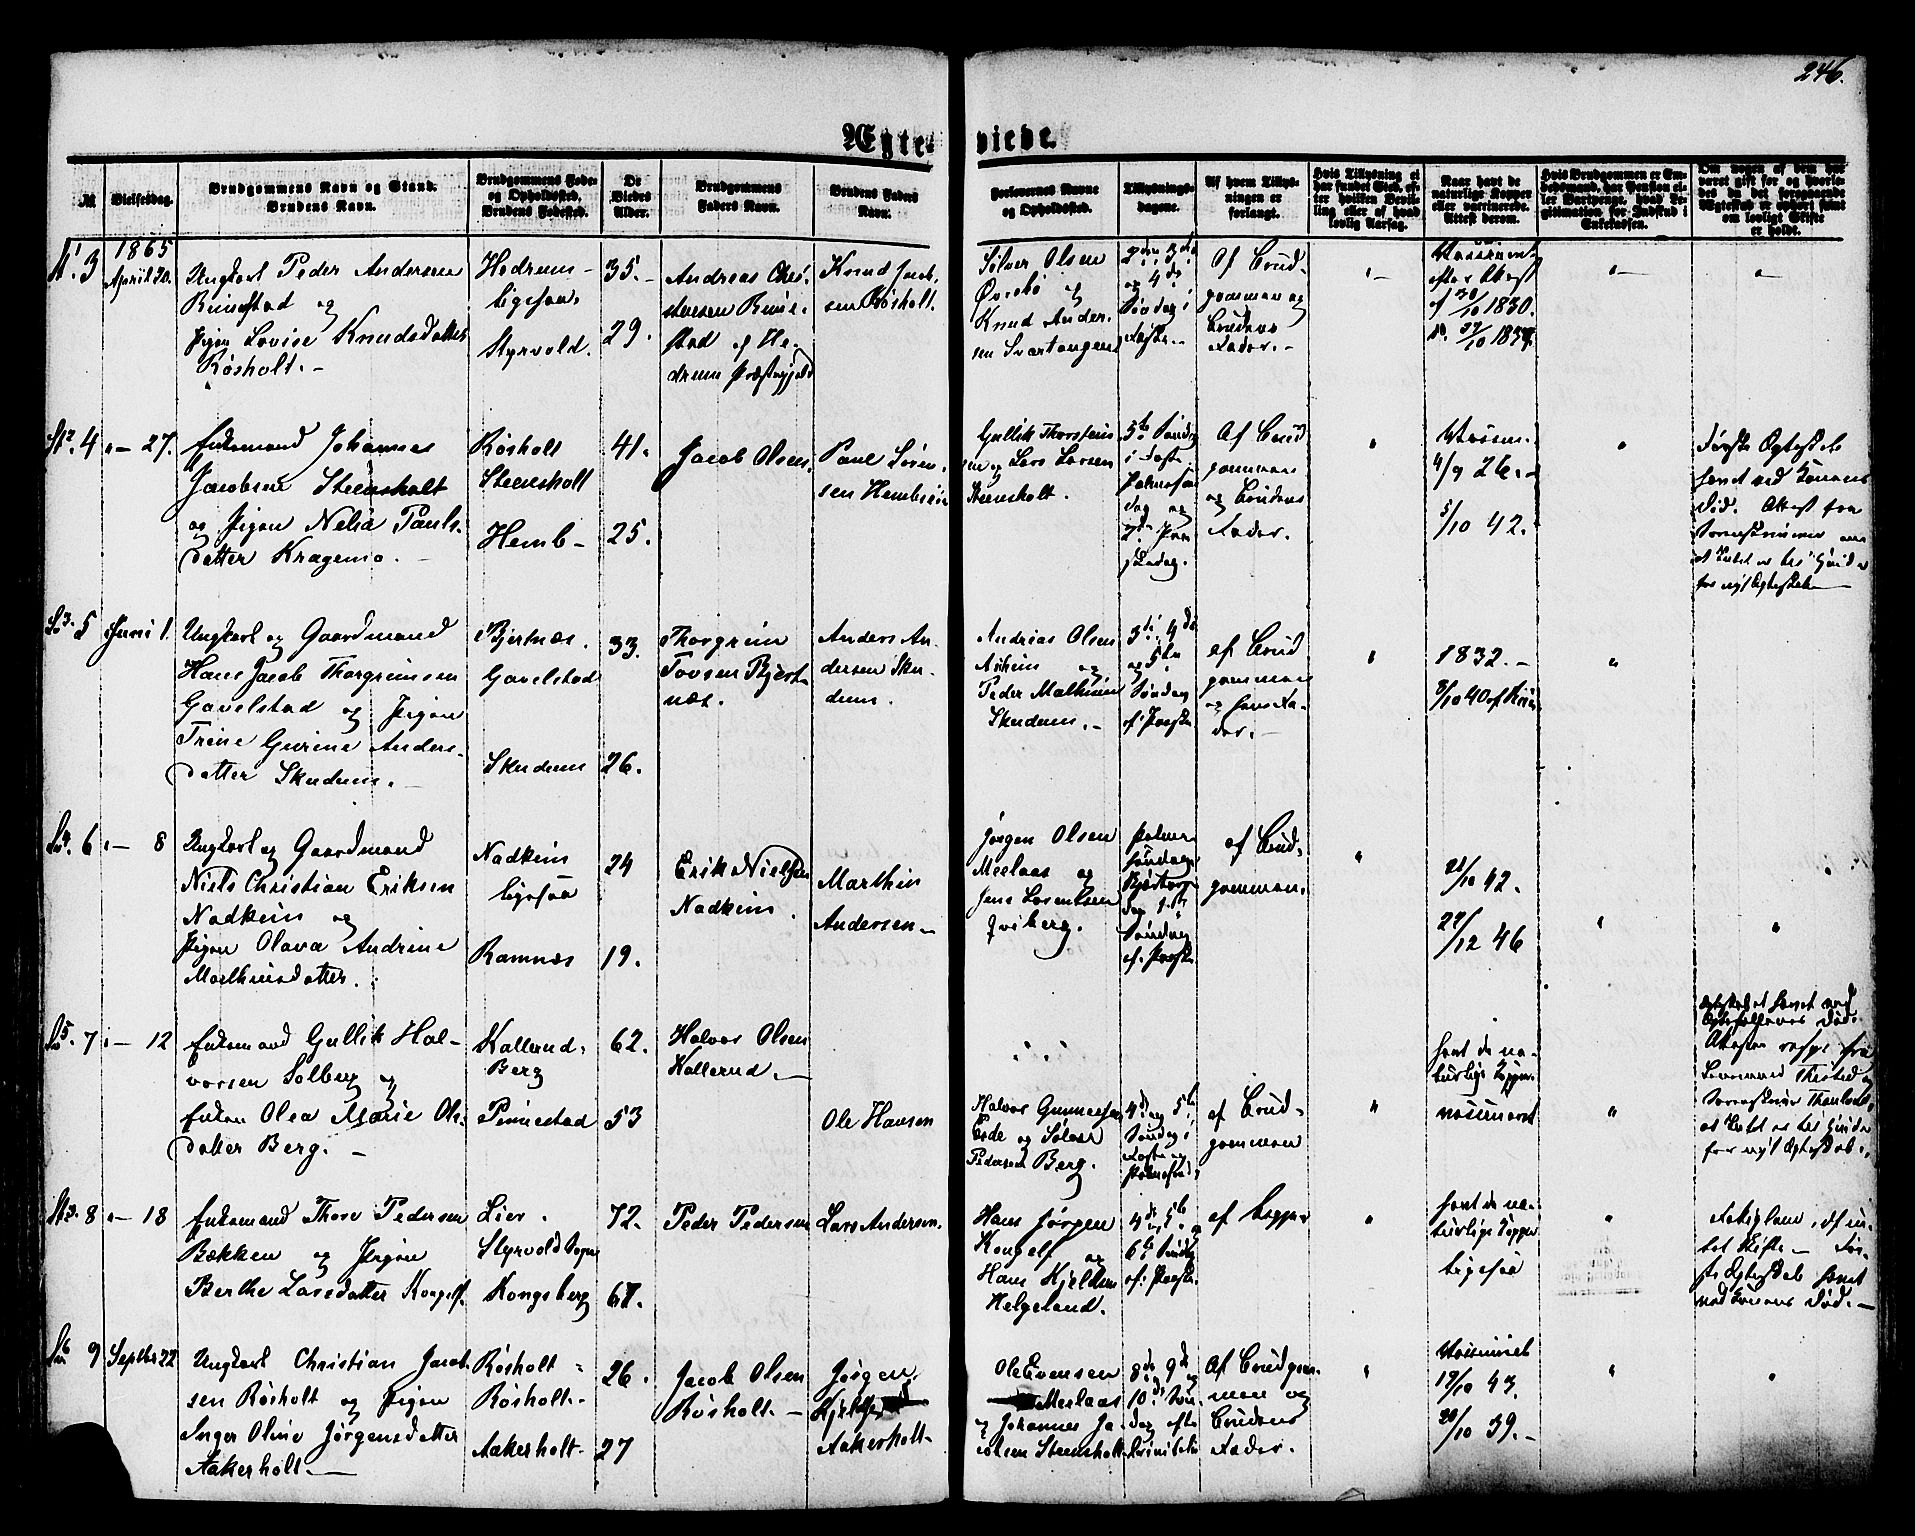 246.
Ægte- viede.
№
Vielsesdag.
Brudgommens Navn og Stand.
Brudens Navn.
Brudgommens Føde-
og Opholdssted.
Brudens Fødested.
De
Viedes
Alder.
Brudgommens
Faders Navn.
Brudens Faders
Navn.
Forlovernes Navne
og Opholdssted.
Tillysnings-
dagene.
Af hvem Tillys-
ningen er
forlangt.
Hvis Tillysning ei
har fundet Sted, ef-
ter hvilken Bevil-
ling eller af hvad
lovlig Aarsag.
Naar havt de
naturlige Kopper
eller vaccinerede.
Attest derom.
Hvis Brudgommen er Em-
bedsmand, har Pension el-
ler Vartpenge, hvad Le-
gitimation for Indskud i
Enkekassen.
Om nogen af dem har
været gift før og hvorle-
des da det foregaaende
Ægteskab er ophørt samt
om lovligt Skifte
er holdt.
3
1865
April 20.
Ungkarl Peder Andersen
Rimstad og
Pigen Lovise Knudsdatter
Røsholt.
Hedrum
ligesaa.
Styrvold.
35.
29.
Andreas Chri-
stensen Rim-
stad af He-
drum Præstegjeld
Knud Jacob-
sen Røsholt.
Sølver Olsen
Øvrebø og
Knud Ander-
sen Svartangen
2den 3die
og 4de
Søndag i
Faste.
Af Brud-
gommen og
Brudens
Fader.
30/10 1830.
4 27.
Enkemand Johannes
Jacobsen Steensholt
og Pigen Nelia Pauls-
datter Kragemo.
Røsholt
Steensholt
Hemb
41.
25.
Jacob Olsen.
Paul Søren-
sen Hemb
Gullik Thorstein-
sen og Lars Larsen
Steensholt.
5te Søndag
i Faste
Palmesøn-
dag og
Af Brud
gommen
og Brudens
Fader.
4/9 26.
5/10 42.
Første Ægteskab
hævet ved Konens
Død. Attest fra
Sorenskriveren om
for nyt Ægteskab
5 Juni 1.
Ungkarl og Gaardmand
Hans Jacob Thorgrimsen
Gavelstad og Pigen
Trine Gurine Anders-
datter Skudem.
Bjertnæs.
Gavelstad
Skudem
33.
26.
Thorgrim
Tovsen Bjert-
næs.
Anders An-
dersen Sku-
dem.
Andreas Olsen
Askim og
Peder Mathisen
Skudem.
3die, 4de
og 5te
Søndag
ef. Paaske
af Brud
gommen
og hans Fa-
der.
1832.
8/10 40
6 8
Ungkarl og Gaardmand
Niels Christian Eriksen
Nadheim og
Pigen Olava Andrine
Mathisdatter.
Nadheim
ligesaa
Ramnæs
24
19.
Erik Nielsen
Nadheim.
Marthin
Andersen
Jørgen Olsen
Meelaas og
Jens Lorentsen
Hviberg.
Palme
søndag
Søndag
ef. Paaske
af Brud-
gommen.
21/10 42.
22/12 46
7 12
Enkemand Gullik Hal-
vorsen Solberg og
Enken Olea Marie Ols-
datter Berg.
Kallerud
Berg
62.
53
Halvor Olsen
Kallerud
Ole Hansen
Halvor Gunnersen
Eide og Sølver
Pedersen Berg.
4de og 5te
Søndag i
Faste og
af Brud-
gommen
havt de na-
turlige Kopper
vaccineret
Ægteskabet hævet ved
Ægtefællernes Død.
for nyt Ægteskab
8 18
Enkemand Thore Pedersen
Bækken og Pigen
Berthe Larsdatter Kongelf.
Lier
Styrvold Sogn
Kongsberg
72.
67.
Peder Pedersen
Lars Andersen.
Hans Jørgen
Kongelf og
Hans Kjeldsen
Helgeland.
4de 5te og
6te Søndag
ef. Paaske.
af begge
havt de na-
turlige Kopper
ligesaa
Fattiglem, af in-
tet Skifte. Før-
ste Ægteskab hævet
ved Konens Død.
9 Septbr 22
Ungkarl Christian Jacob-
sen Røsholt og Pigen
Inger Oline Jørgensdatter
Aakerholt.
Røsholt
Røsholt.
Aakerholt
26.
27
Jacob Olsen
Røsholt.
Jørgen
Aakerholt
Ole Evensen
Meelaas
og Johannes Ja-
cobsen Steensholt
8de 9de og
10de Søn-
dag efter
Trinitatis
Af Brudgom-
men og
Brudens
Fader.
19/10 43.
20/10 39.